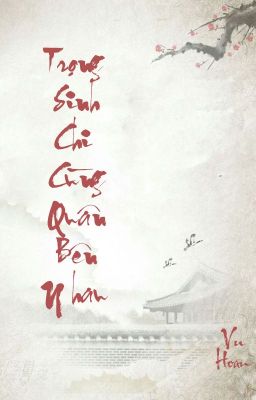 Trọng
Sinh
Chi
Cùng
Quân
Bên
Nhau
Vu
Hoan